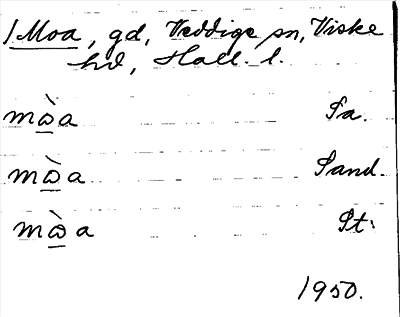 1 Moa, gd, Veddige sn, Viske
hd, Hall. l.
mɷ̀a Sa.
mɷ̀a Sand.
mɷ̀a St.
1950.